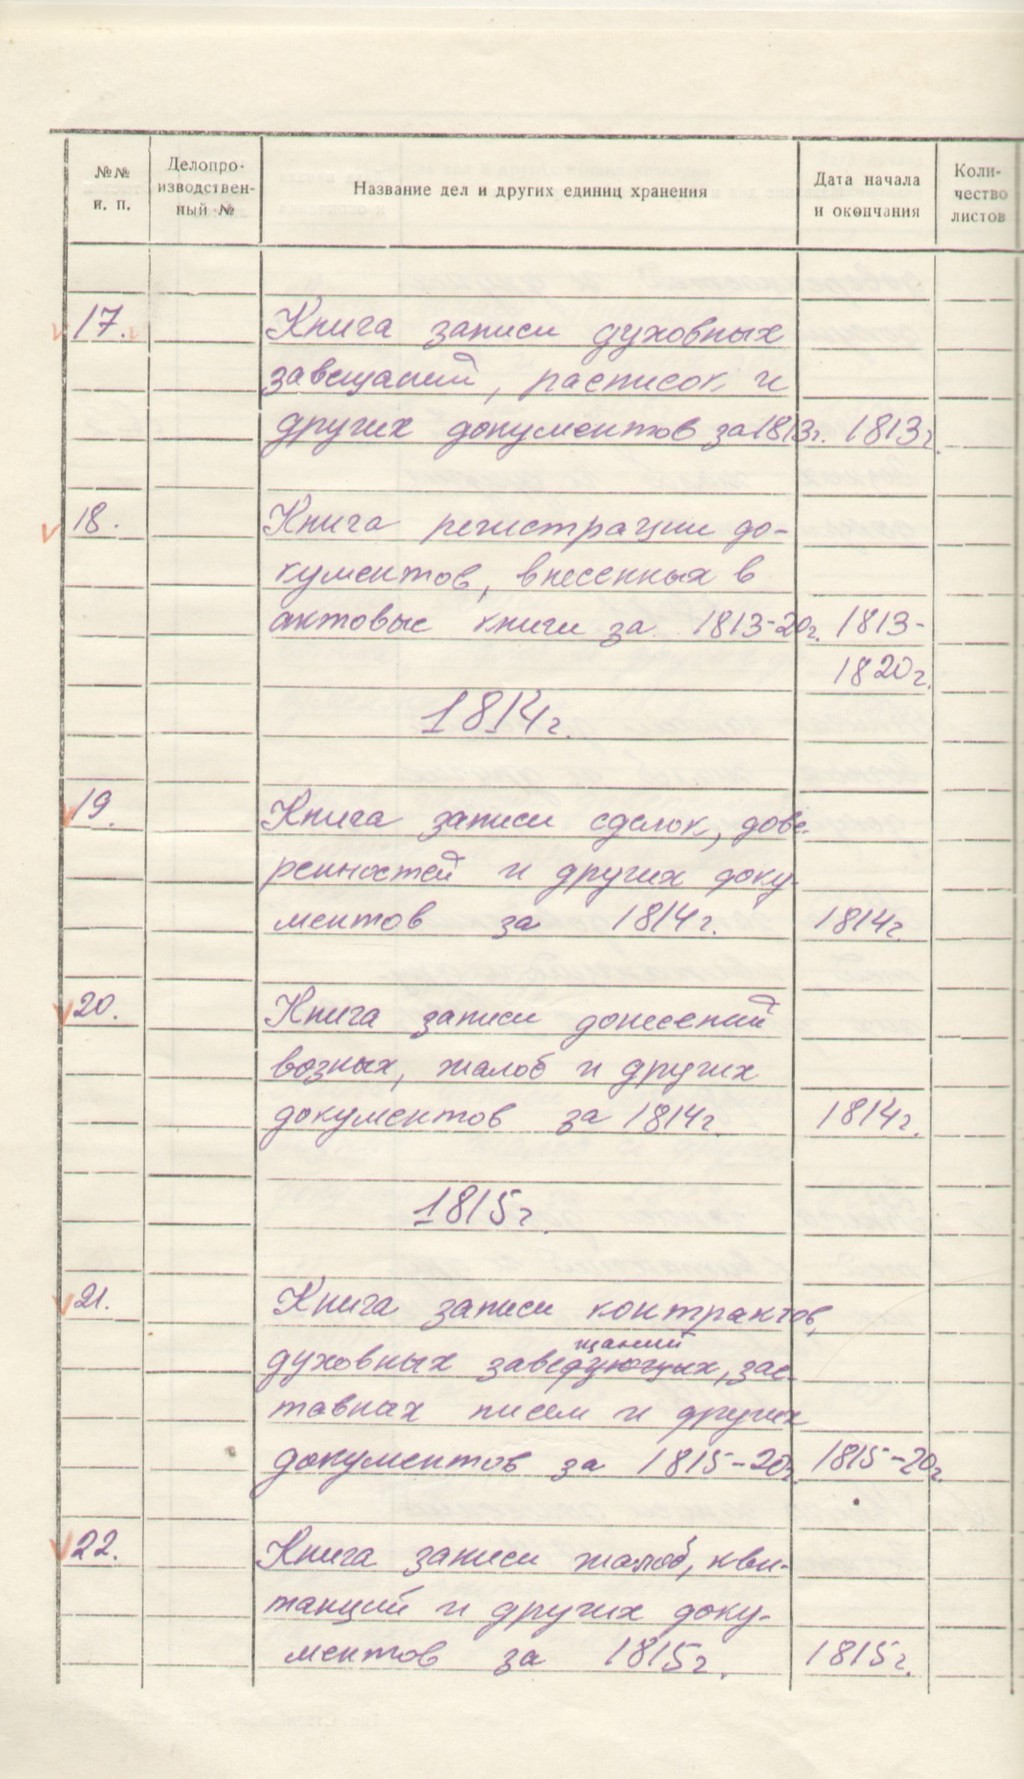 №№
п. п.
Делопро-
изводствен-
ный №
Название дел и других единиц хранения
Дата начала
и окончания
Коли-
чество
листов
17.
Книга записи духовных
завещаний, расписок и
других документов за 1813г. 1813г.
18.
Книга регистрации до-
кументов, внесенных в
актовые книги за 1813-20г. 1813-
1820г.
1814г.
19.
Книга записи сделок, дове-
ренностей и других доку-
ментов за 1814г. 1814г.
20.
Книга записи донесений
возных, жалоб и других
документов за 1814г. 1814г.
1815г.
21.
Книга записи контрактов,
щаний
духовных заведующих, зас-
тавных писем и других
документов за 1815-20г. 1815-20г.
22.
Книга записи жалоб, кви-
танций и других доку-
ментов за 1815г. 1815г.